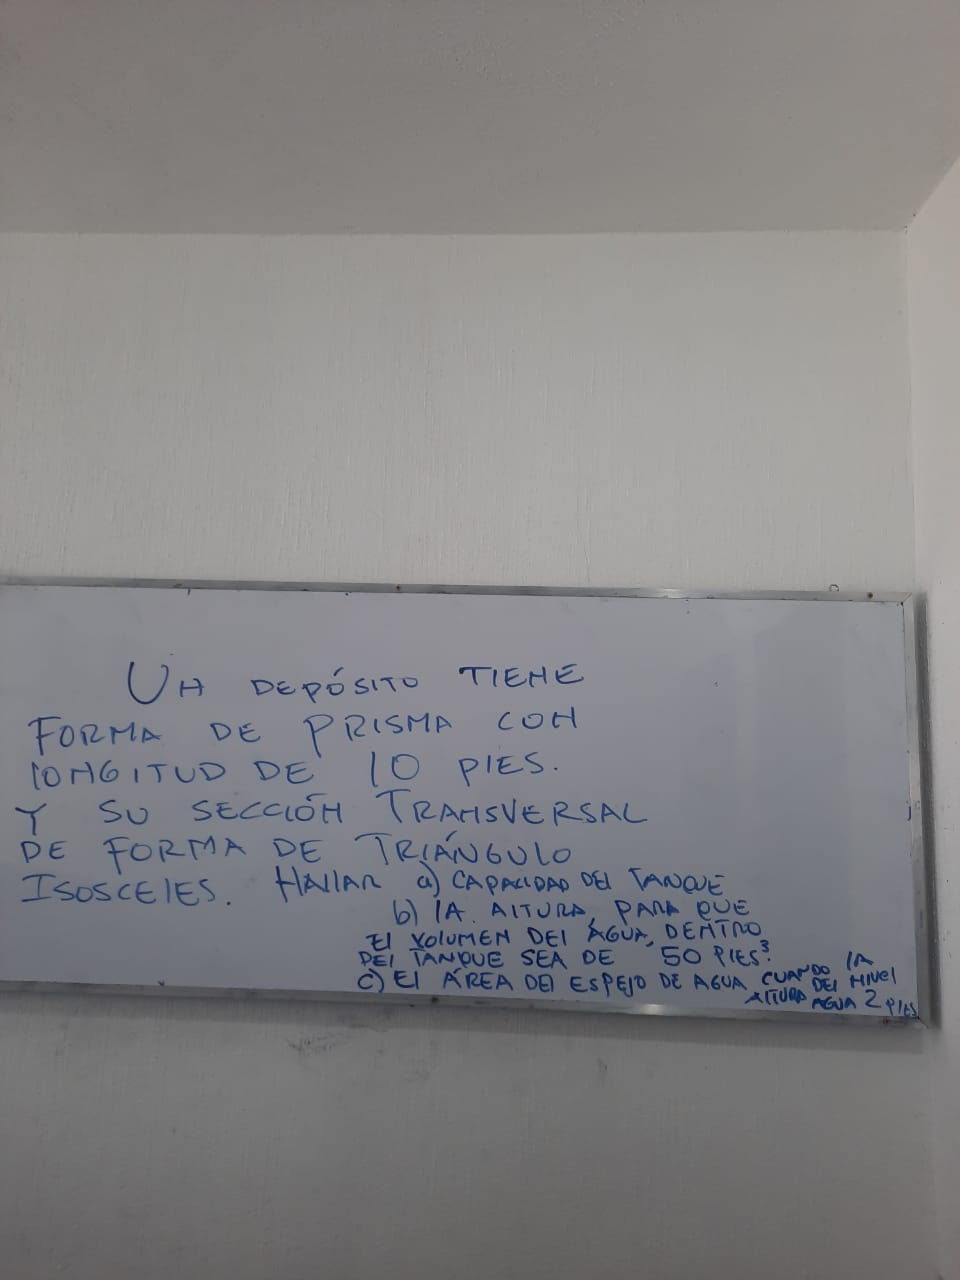 UN DEPÓSITO TIENE
FORMA DE PRISMA CON
lONGITUD DE 10 PIES.
Y SU SECCIÓN TRANSVERSAL
DE FORMA DE TRIÁNGUlO
ISOSCElES. HAllAR a) CAPACIDAD DEl TANQUE
b) lA. AlTURA, PARA QUE
El VOlUMEN DEl ÁGUA, DENTRO
DEl TANQUE SEA DE 50 PIES³.
c) El ÁREA DEl ESPEJO DE AGUA, CUANDO lA
AlTURA DEl NIVEl
AGUA 2 PIES